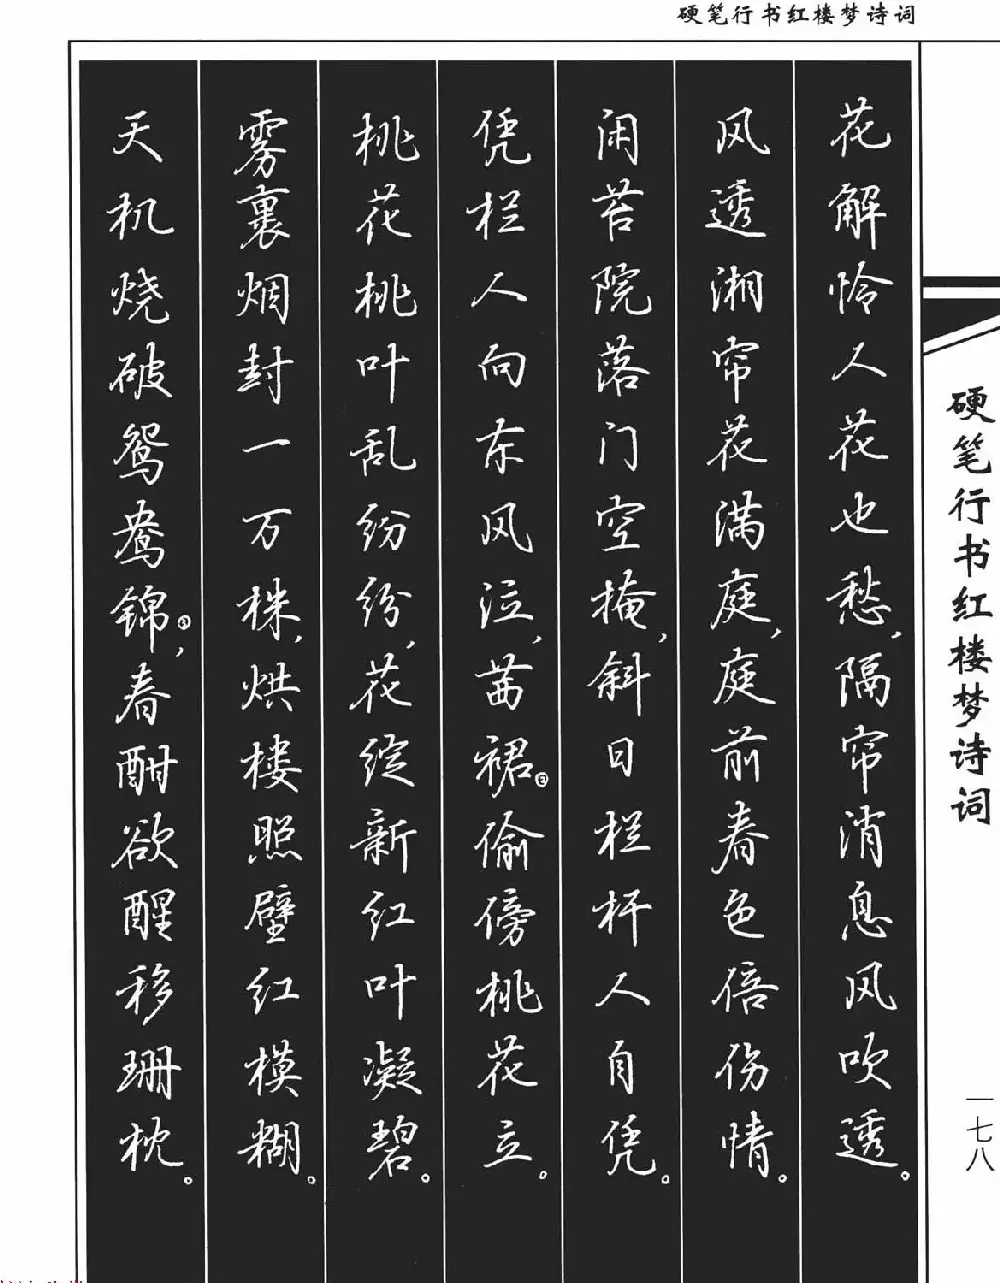 硬笔行书红楼梦诗词
花解怜人花也愁,隔帘消息风吹透。
风透湘帘花满庭,庭前春色倍伤情。
闲苔院落门空掩,斜日栏杆人自凭。
凭栏人向东风泣,茜裙③偷傍桃花立。
桃花桃叶乱纷纷,花绽新红叶凝碧。
雾裹烟封一万株,烘楼照壁红模糊。
天机烧破鸳鸯锦,春酣欲醒移珊枕。
硬笔行书红楼梦诗词
一七八